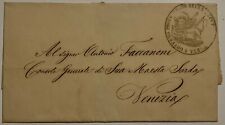 Al signor Antonio Faccanoni
Console Generale di Sua Maestà Sarda
Venezia